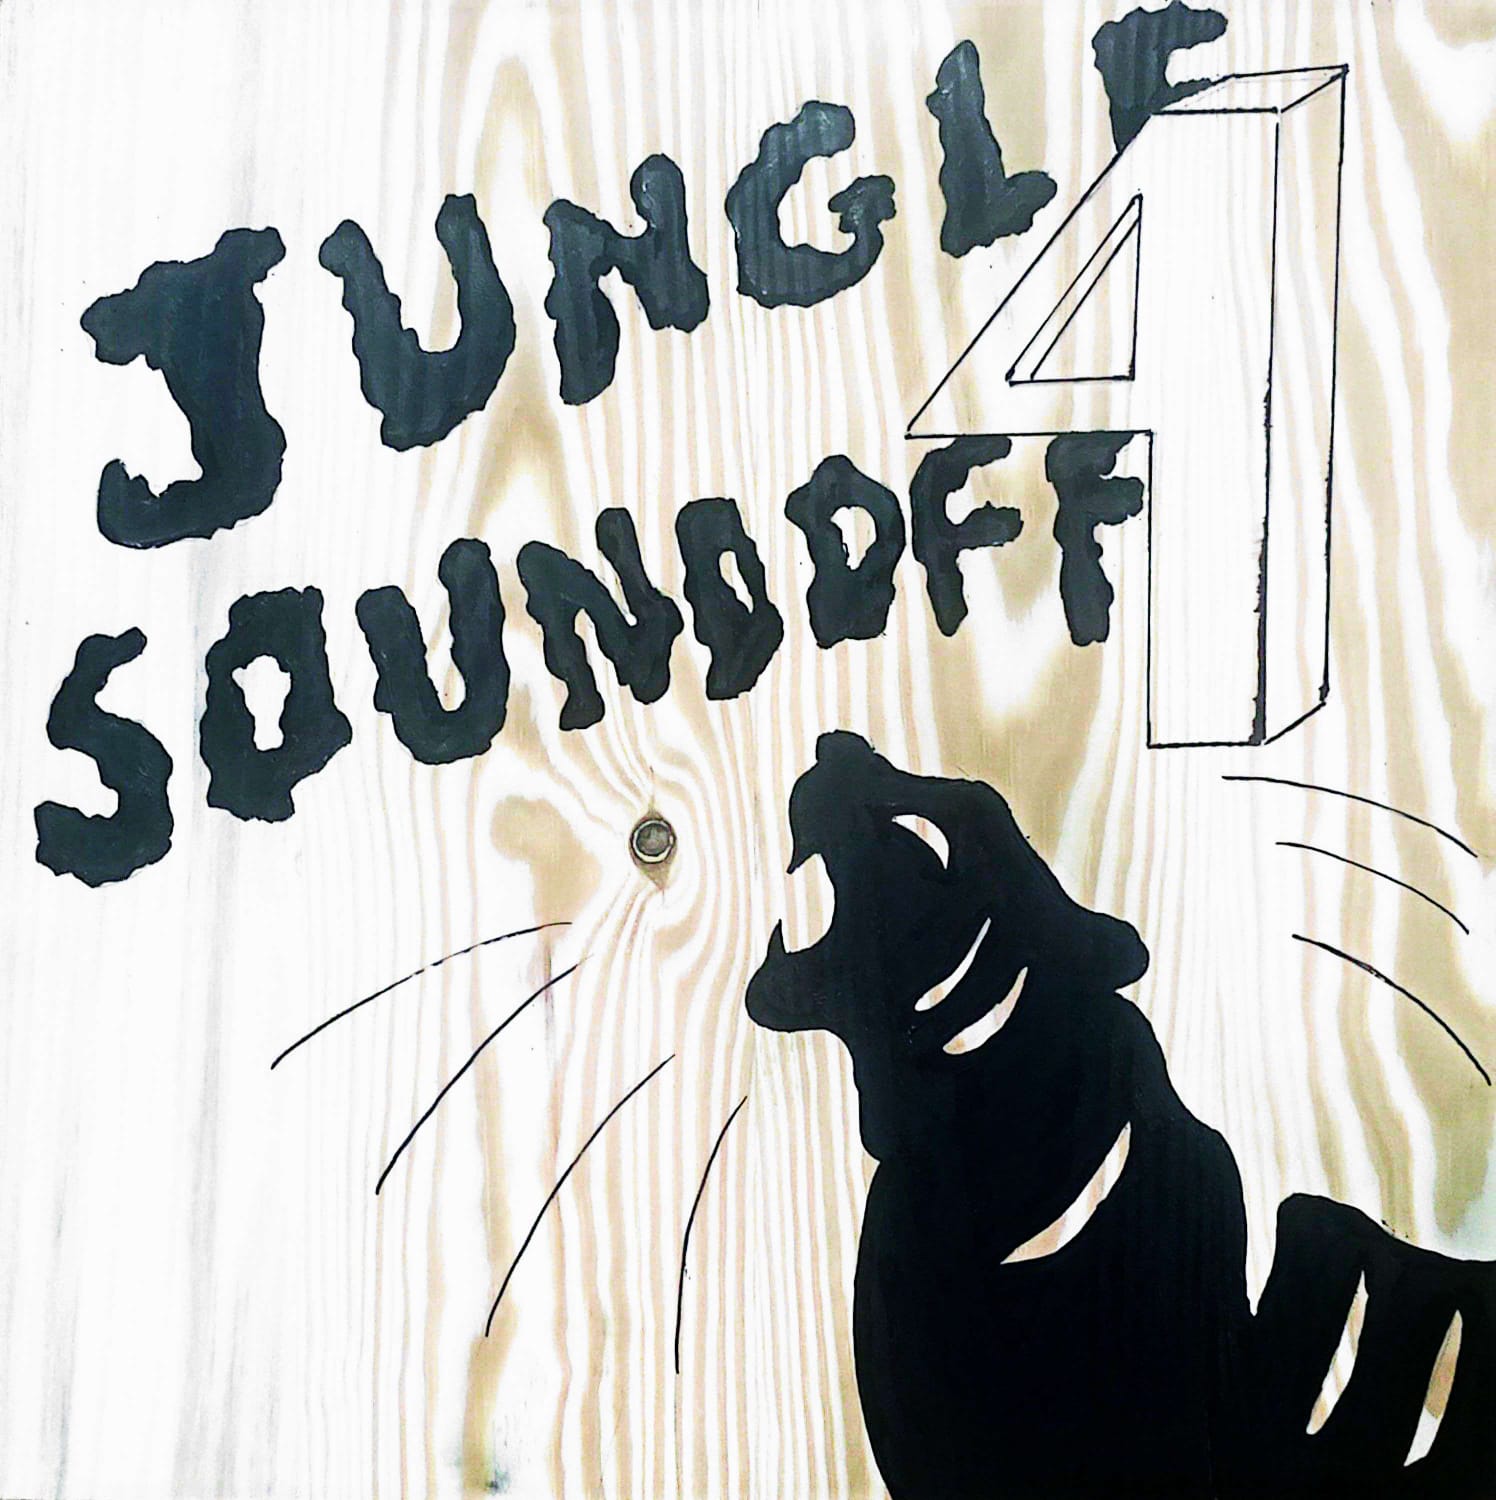 JUNGLE
SOUNDOFF
4